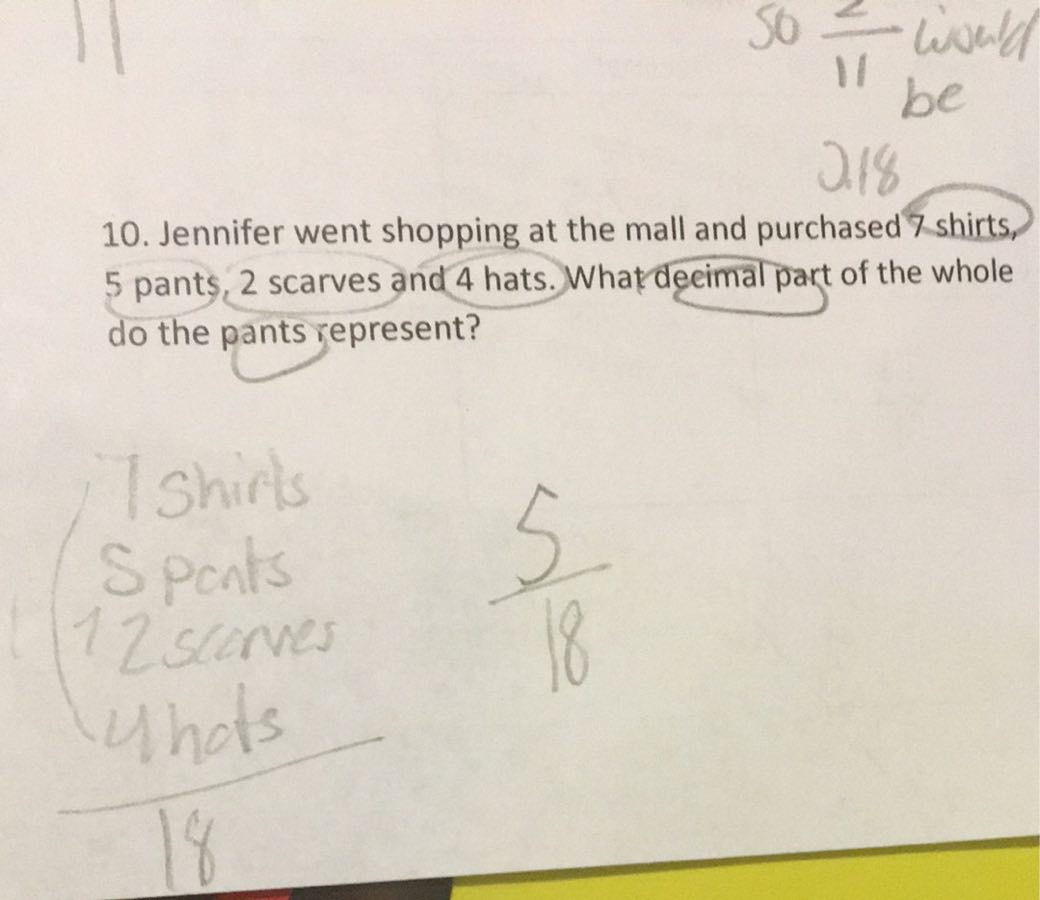 11
so 2/11 would
be
0.18
10. Jennifer went shopping at the mall and purchased 7 shirts,
5 pants, 2 scarves and 4 hats. What decimal part of the whole
do the pants represent?
7 shirts
5 pants
2 scarves
4 hats
18
5
18